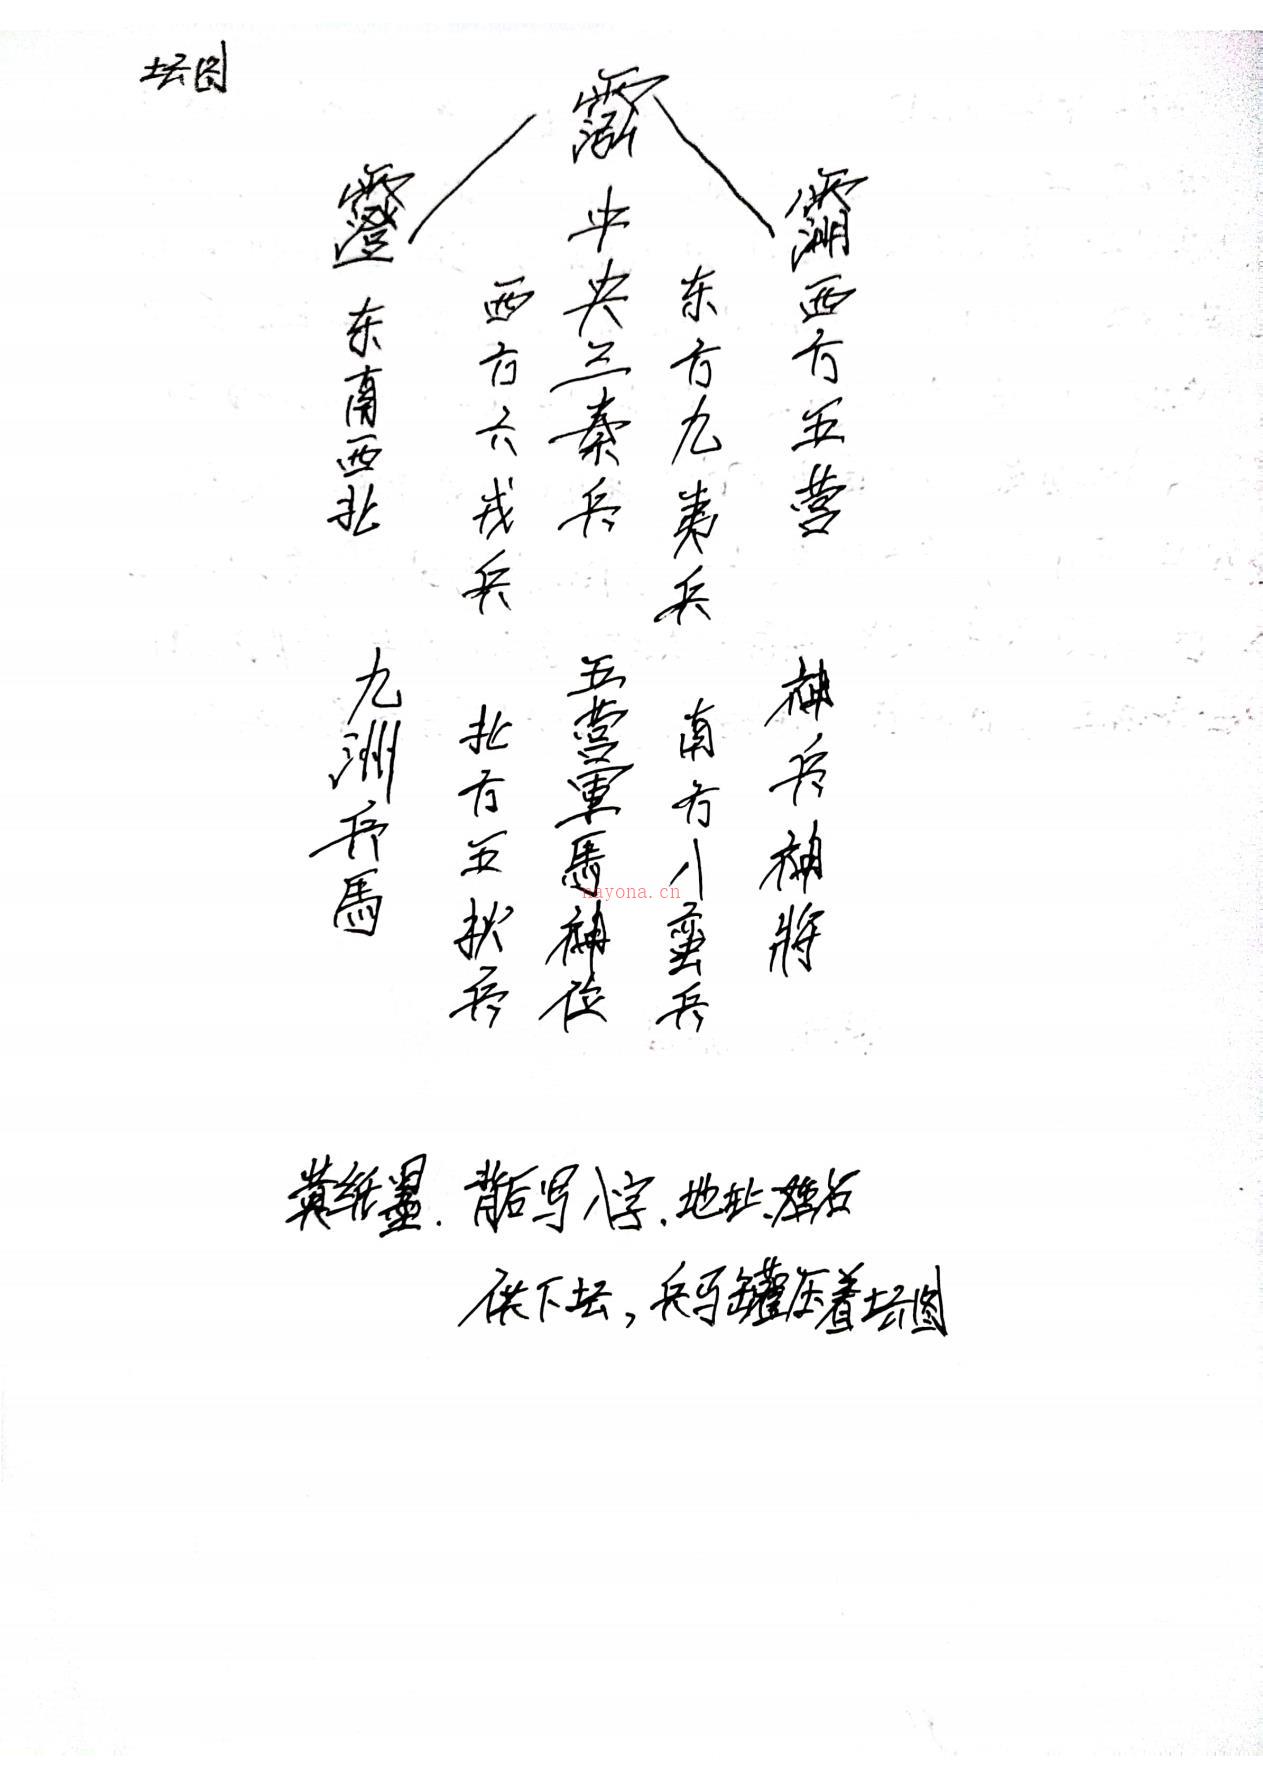 坛图
西方五营 神兵神將
东方九夷兵 南方八蛮兵
中央三秦兵 五营軍馬神位
西方六戎兵 北方五狄兵
东南西北 九洲兵馬
nayona.cn
黄纸量.背后写八字.地址、姓名
供下坛,兵马罐压着坛图